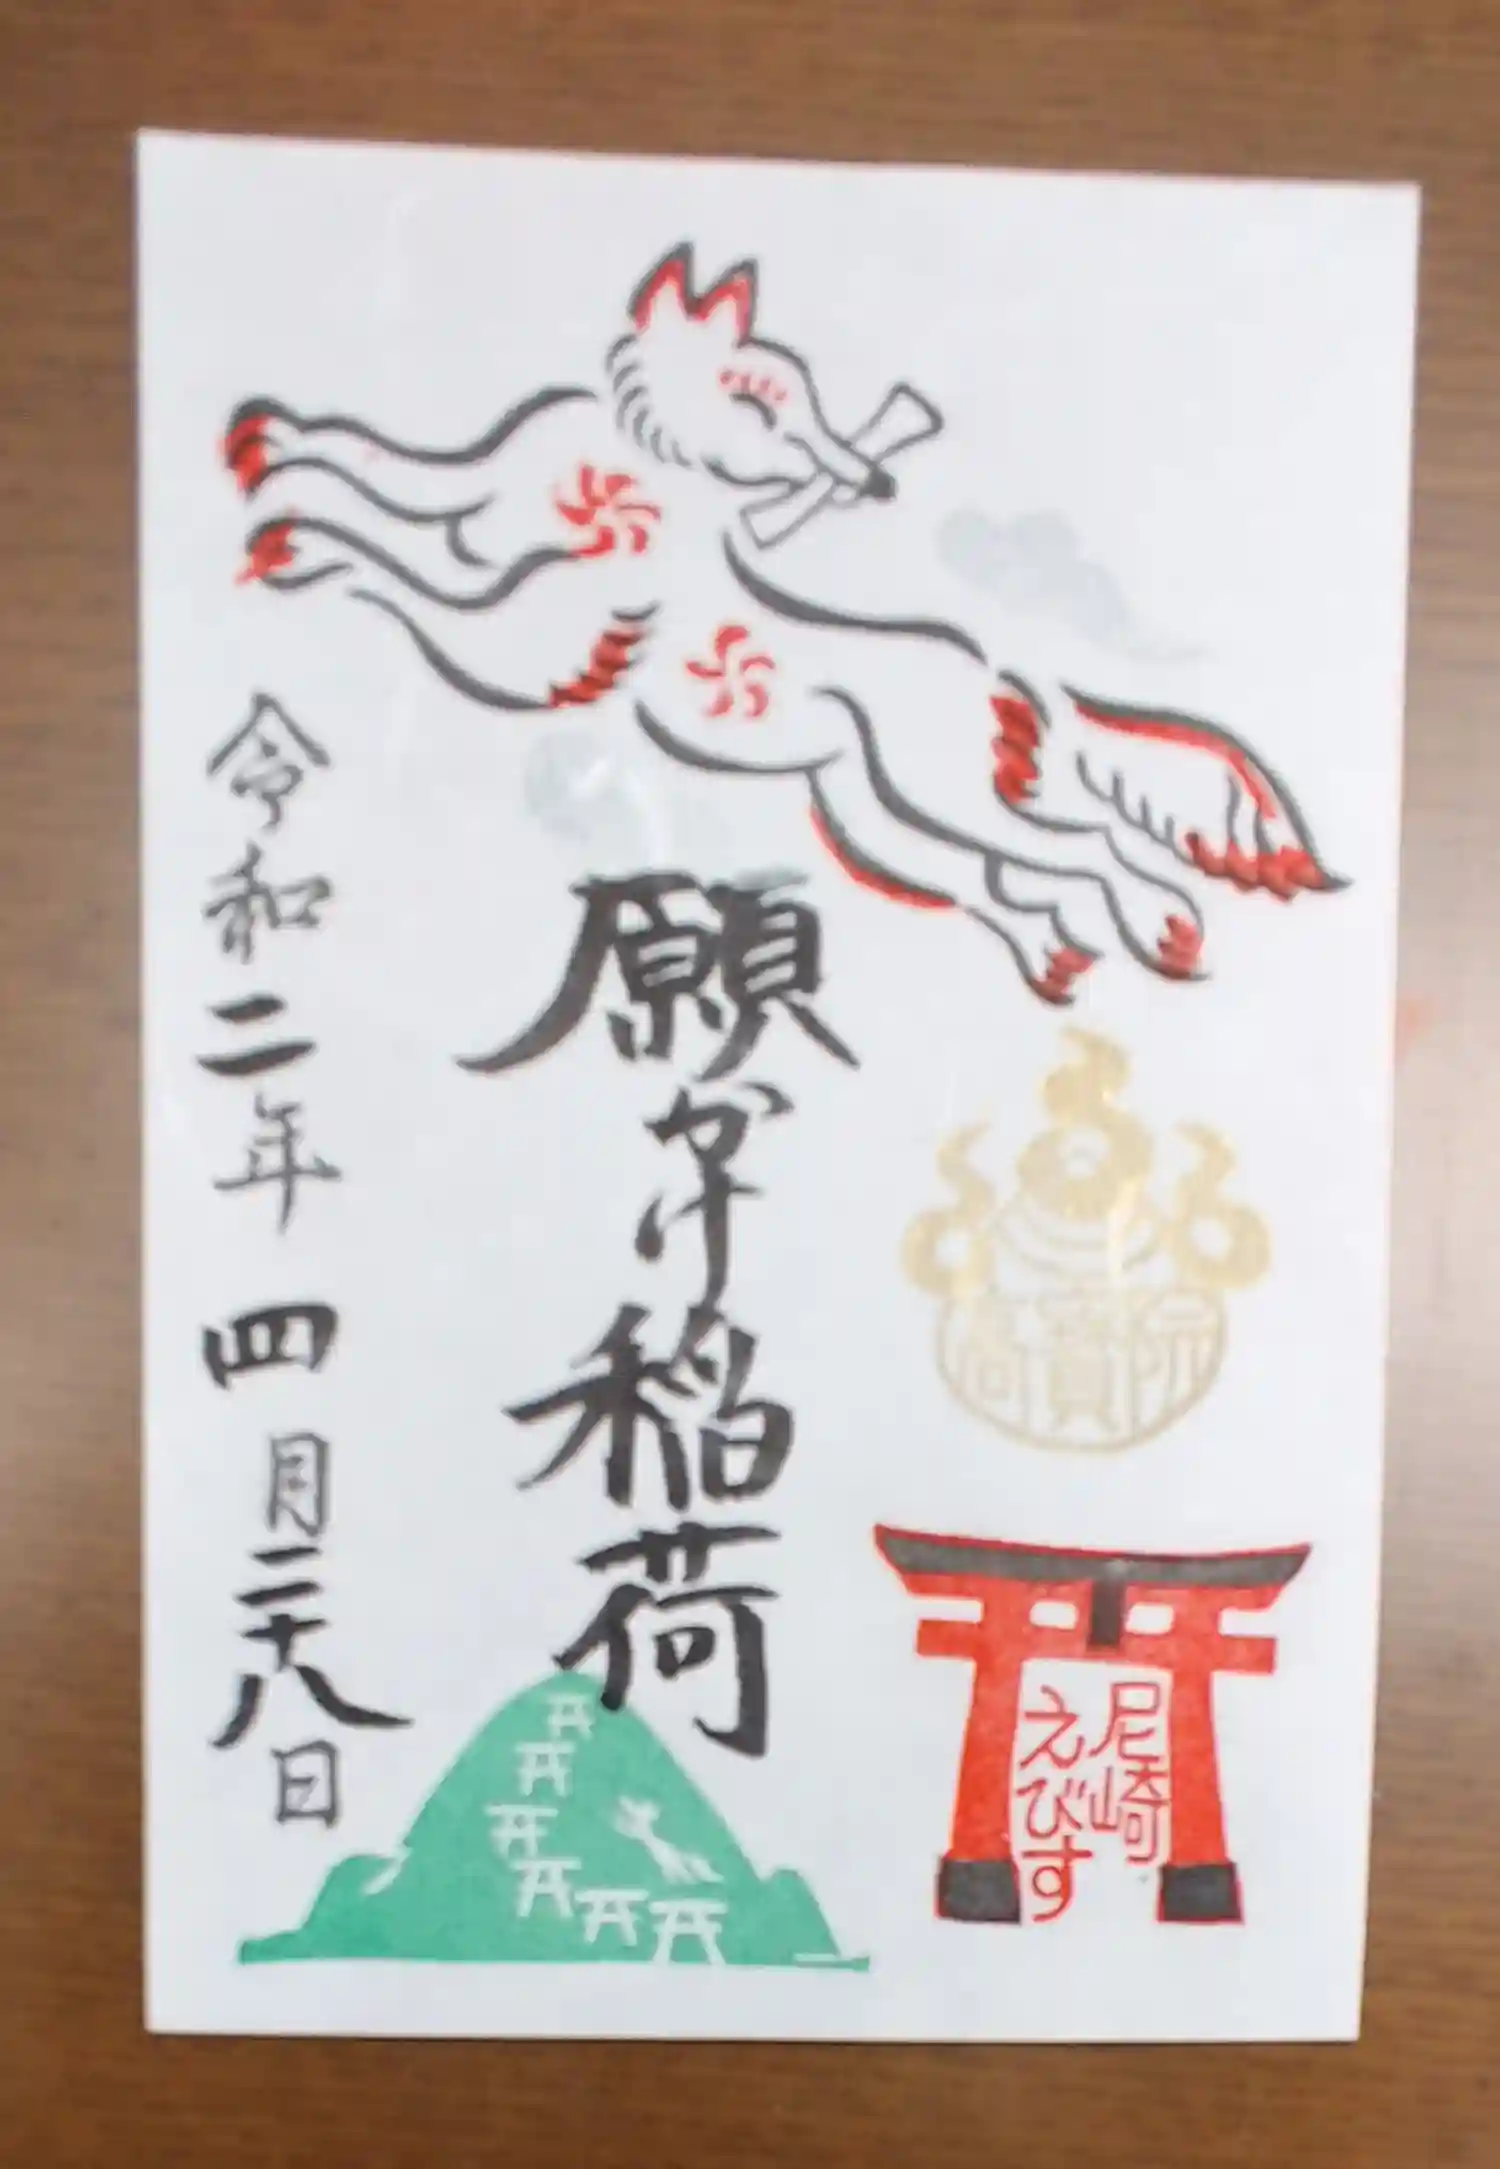 尼崎
えびす
願かけ稲荷
令和二年 四月二十八日